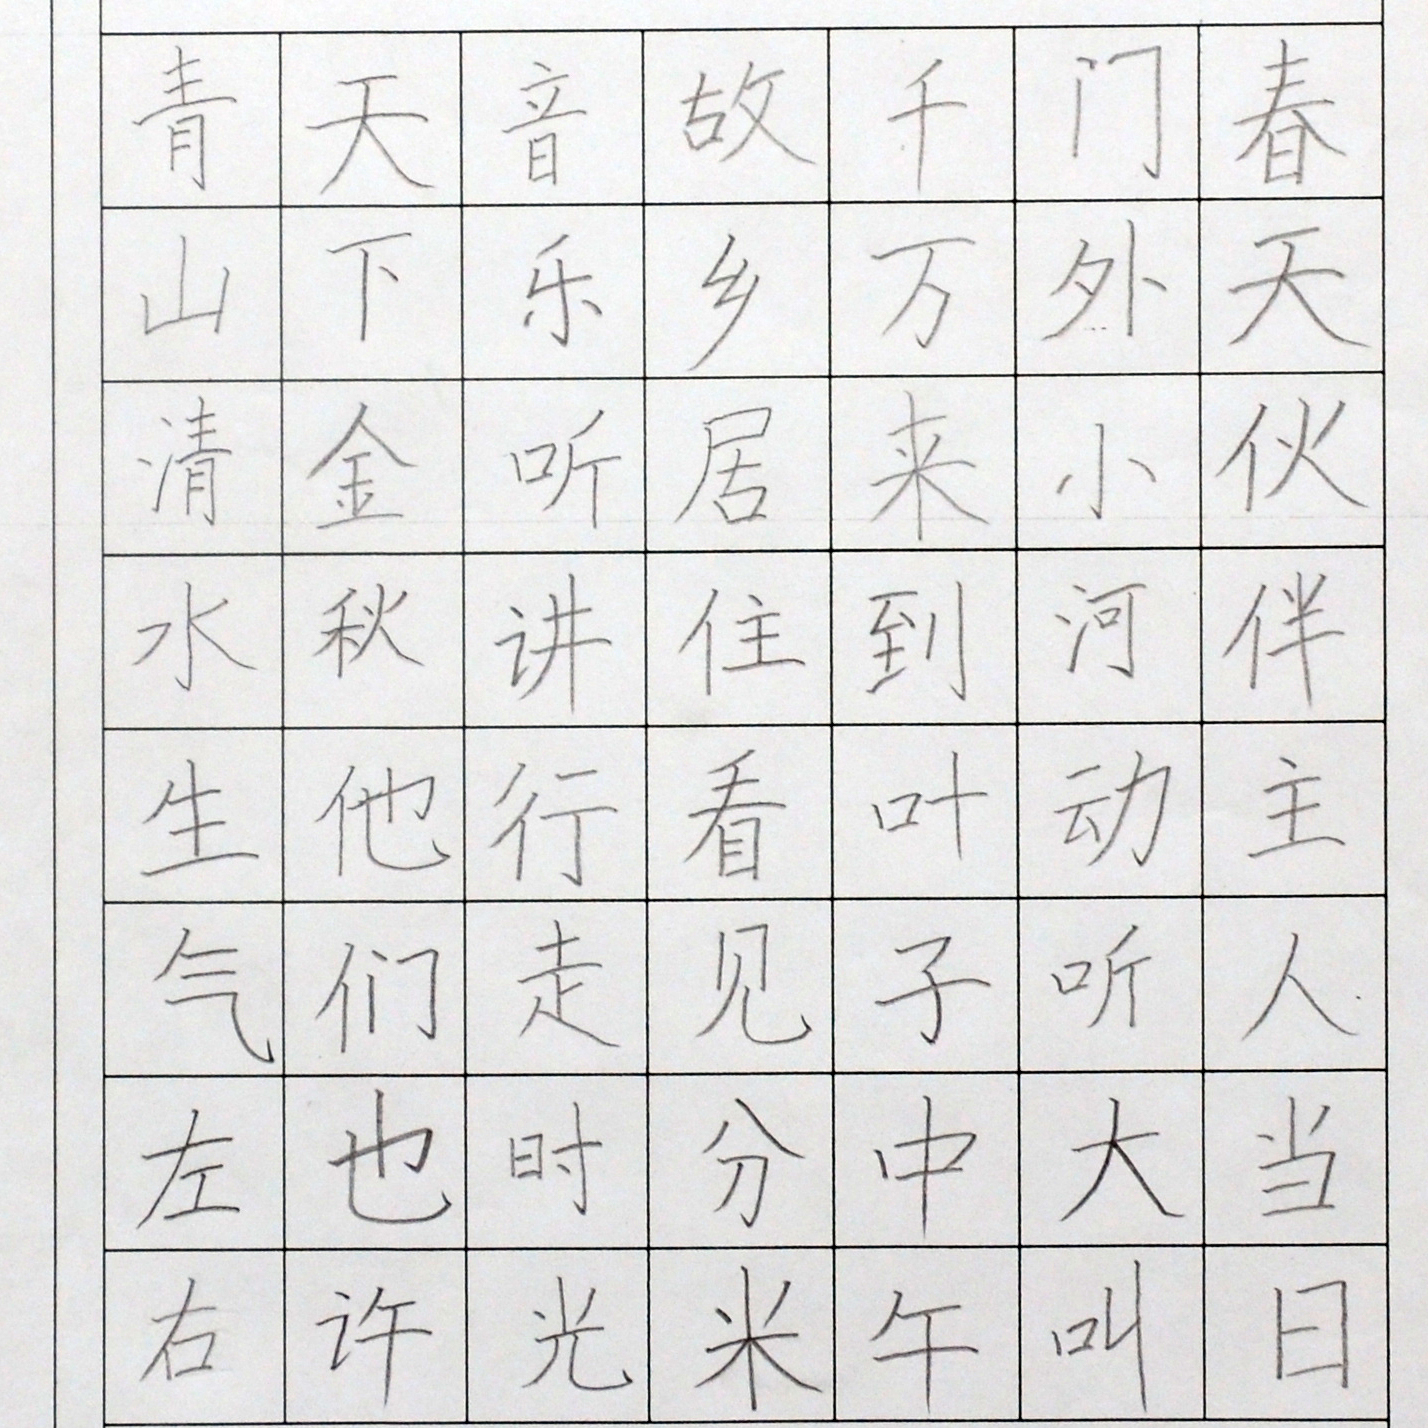 春天伙伴主人当日
门外小河动听大叫
千万来到叶子中午
故乡居住看见分米
音乐听讲行走时光
天下金秋他们也许
青山清水生气左右